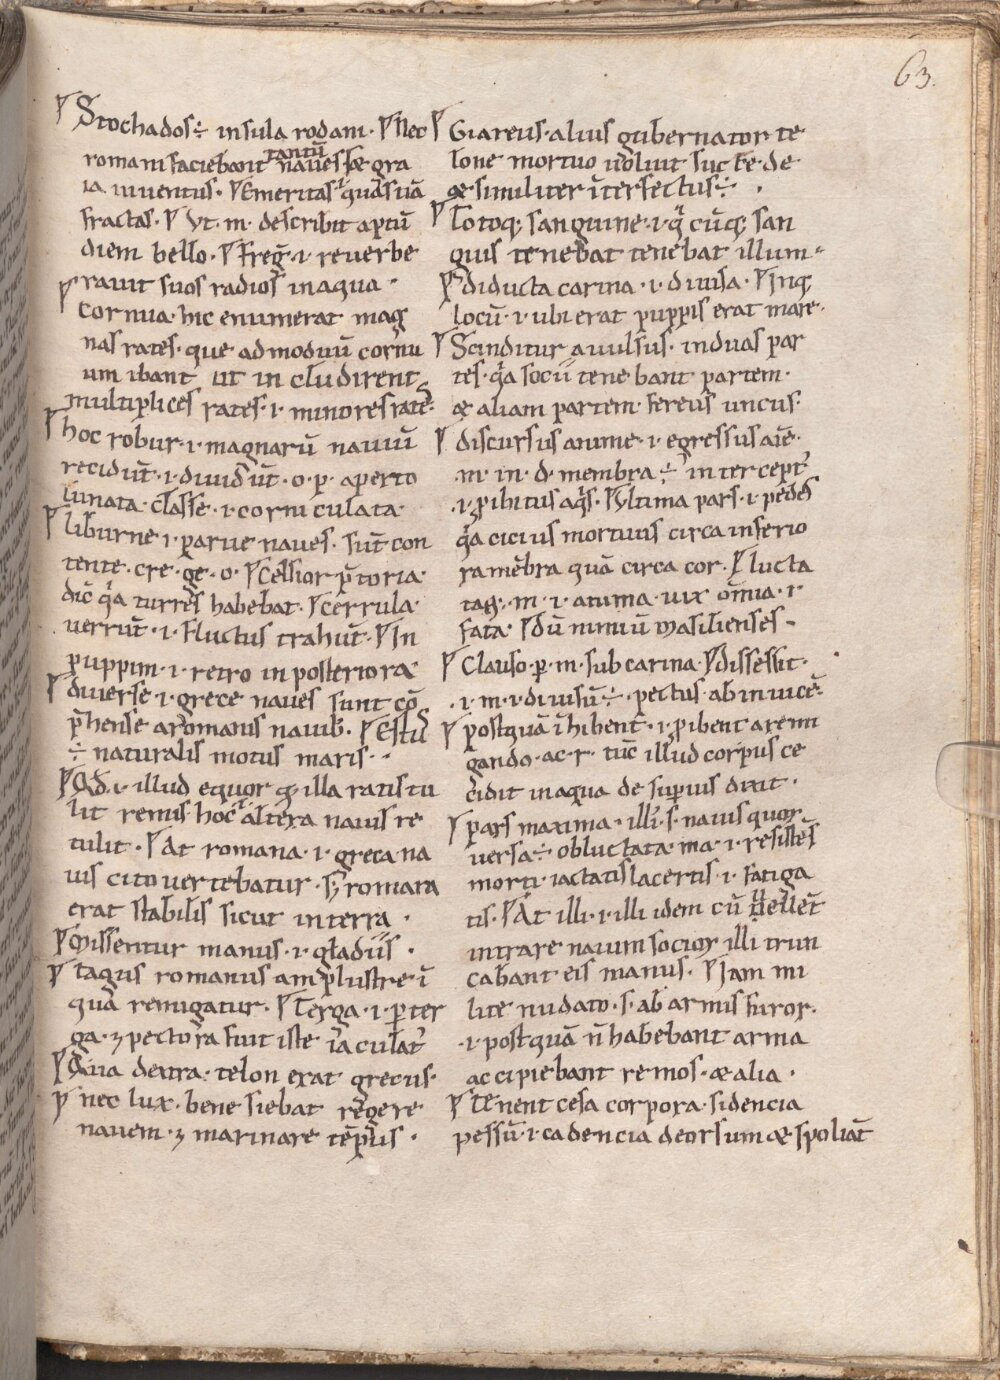 63.
Stochados ÷ insula rodani · Nec
romani faciebant tantū naues sꝫ gra
ia iuuentus · Emeritas ·i· quasi iā
fractas · Vt · m · describit aptū
diem bello · Freḡ · i · reuerbe
rauit suos radios in aqua ·
Cornua · hic enumerat mag
nas rates · que ad modum cornu
um ibant ut in cludirent
multiplices rates · i · minores rates
hoc robur · i · magnarū nauiū
recidūt · i · diuidūt · o · p · aperto
lunata classe · i · corniculata
liburne · i · parue naues · sūt con
tente · cre · ge · o · Celsior p̄toria ·
dic̄ q̄a turres habebat · Cerrula ·
uerrūt · i · fluctus trahūt · In
puppim · i · retro in posteriora
diuerse · i · grece naues sunt cō
p̄hense a romanis nauib; · Estus
÷ naturalis motus maris ·
Ad · i · illud equor q; illa ratis tu
lit remis hoc altera nauis re
tulit · At romana · i · greca na
uis cito uertebatur · sꝫ romana
erat stabilis sicut in terra ·
Missentur manus · i · gladiis ·
tagus romanus amplustre ī
qua remigatur · Terga · i · p̄ ter
ga · ⁊ pectora fuit iste iaculat᷒
Qua dextra · telon erat grecus ·
nec lux · bene siebat regere
nauem · ⁊ marinare tēp̄tis ·
Giareus · alius gubernator te
lone mortuo uoluit succede
æ similiter īterfectus ÷ ·
Totoq; sanguine · i · q̄ cūq; san
guis tenebat tenebat illum
diducta carina · i · diuisa · Inq;
locū · i · ubi erat puppis erat mare ·
Scinditur auulsus · in duas par
tes · q̄a socii tenebant partem ·
æ aliam partem · ferreus uncus ·
discursus anime · i · egressus aīe ·
· m · in · d · membra ÷ intercept᷒
· i · p̄hibitus aq̄s · Vltima pars · i · pedes
q̄a cicius mortuus circa inferio
ra mēbra quā circa cor · lucta
tag; · m · i · anima · uix omīa · i ·
fata · Dū nimiū masilienses -
Clauso · p · m · sub carina · dissessit ·
· i · m · i · diuisū ÷ · pectus ab inuicē ·
postquā īhibent᷒ · i · p̄hibent a remi
gando · ac · r · tūc illud corpus ce
cidit in aqua de superius dixit ·
pars maxima · illi · s · nauis quor
uersa ÷ obluctata · ma · i · resistēs
morti · iactatis lacertis · i · fatiga
tis · At illi · i · illi idem cū uellēt
intrare nauim socior illi trun
cabant eis manus · Iam mi
lite nudato · s · ab armis furor ·
· i · postquā n̄ habebant arma
accipiebant remos · æ alia ·
tenent cesa corpora · sidencia
pessū · i · cadencia deorsum æ spoliāt